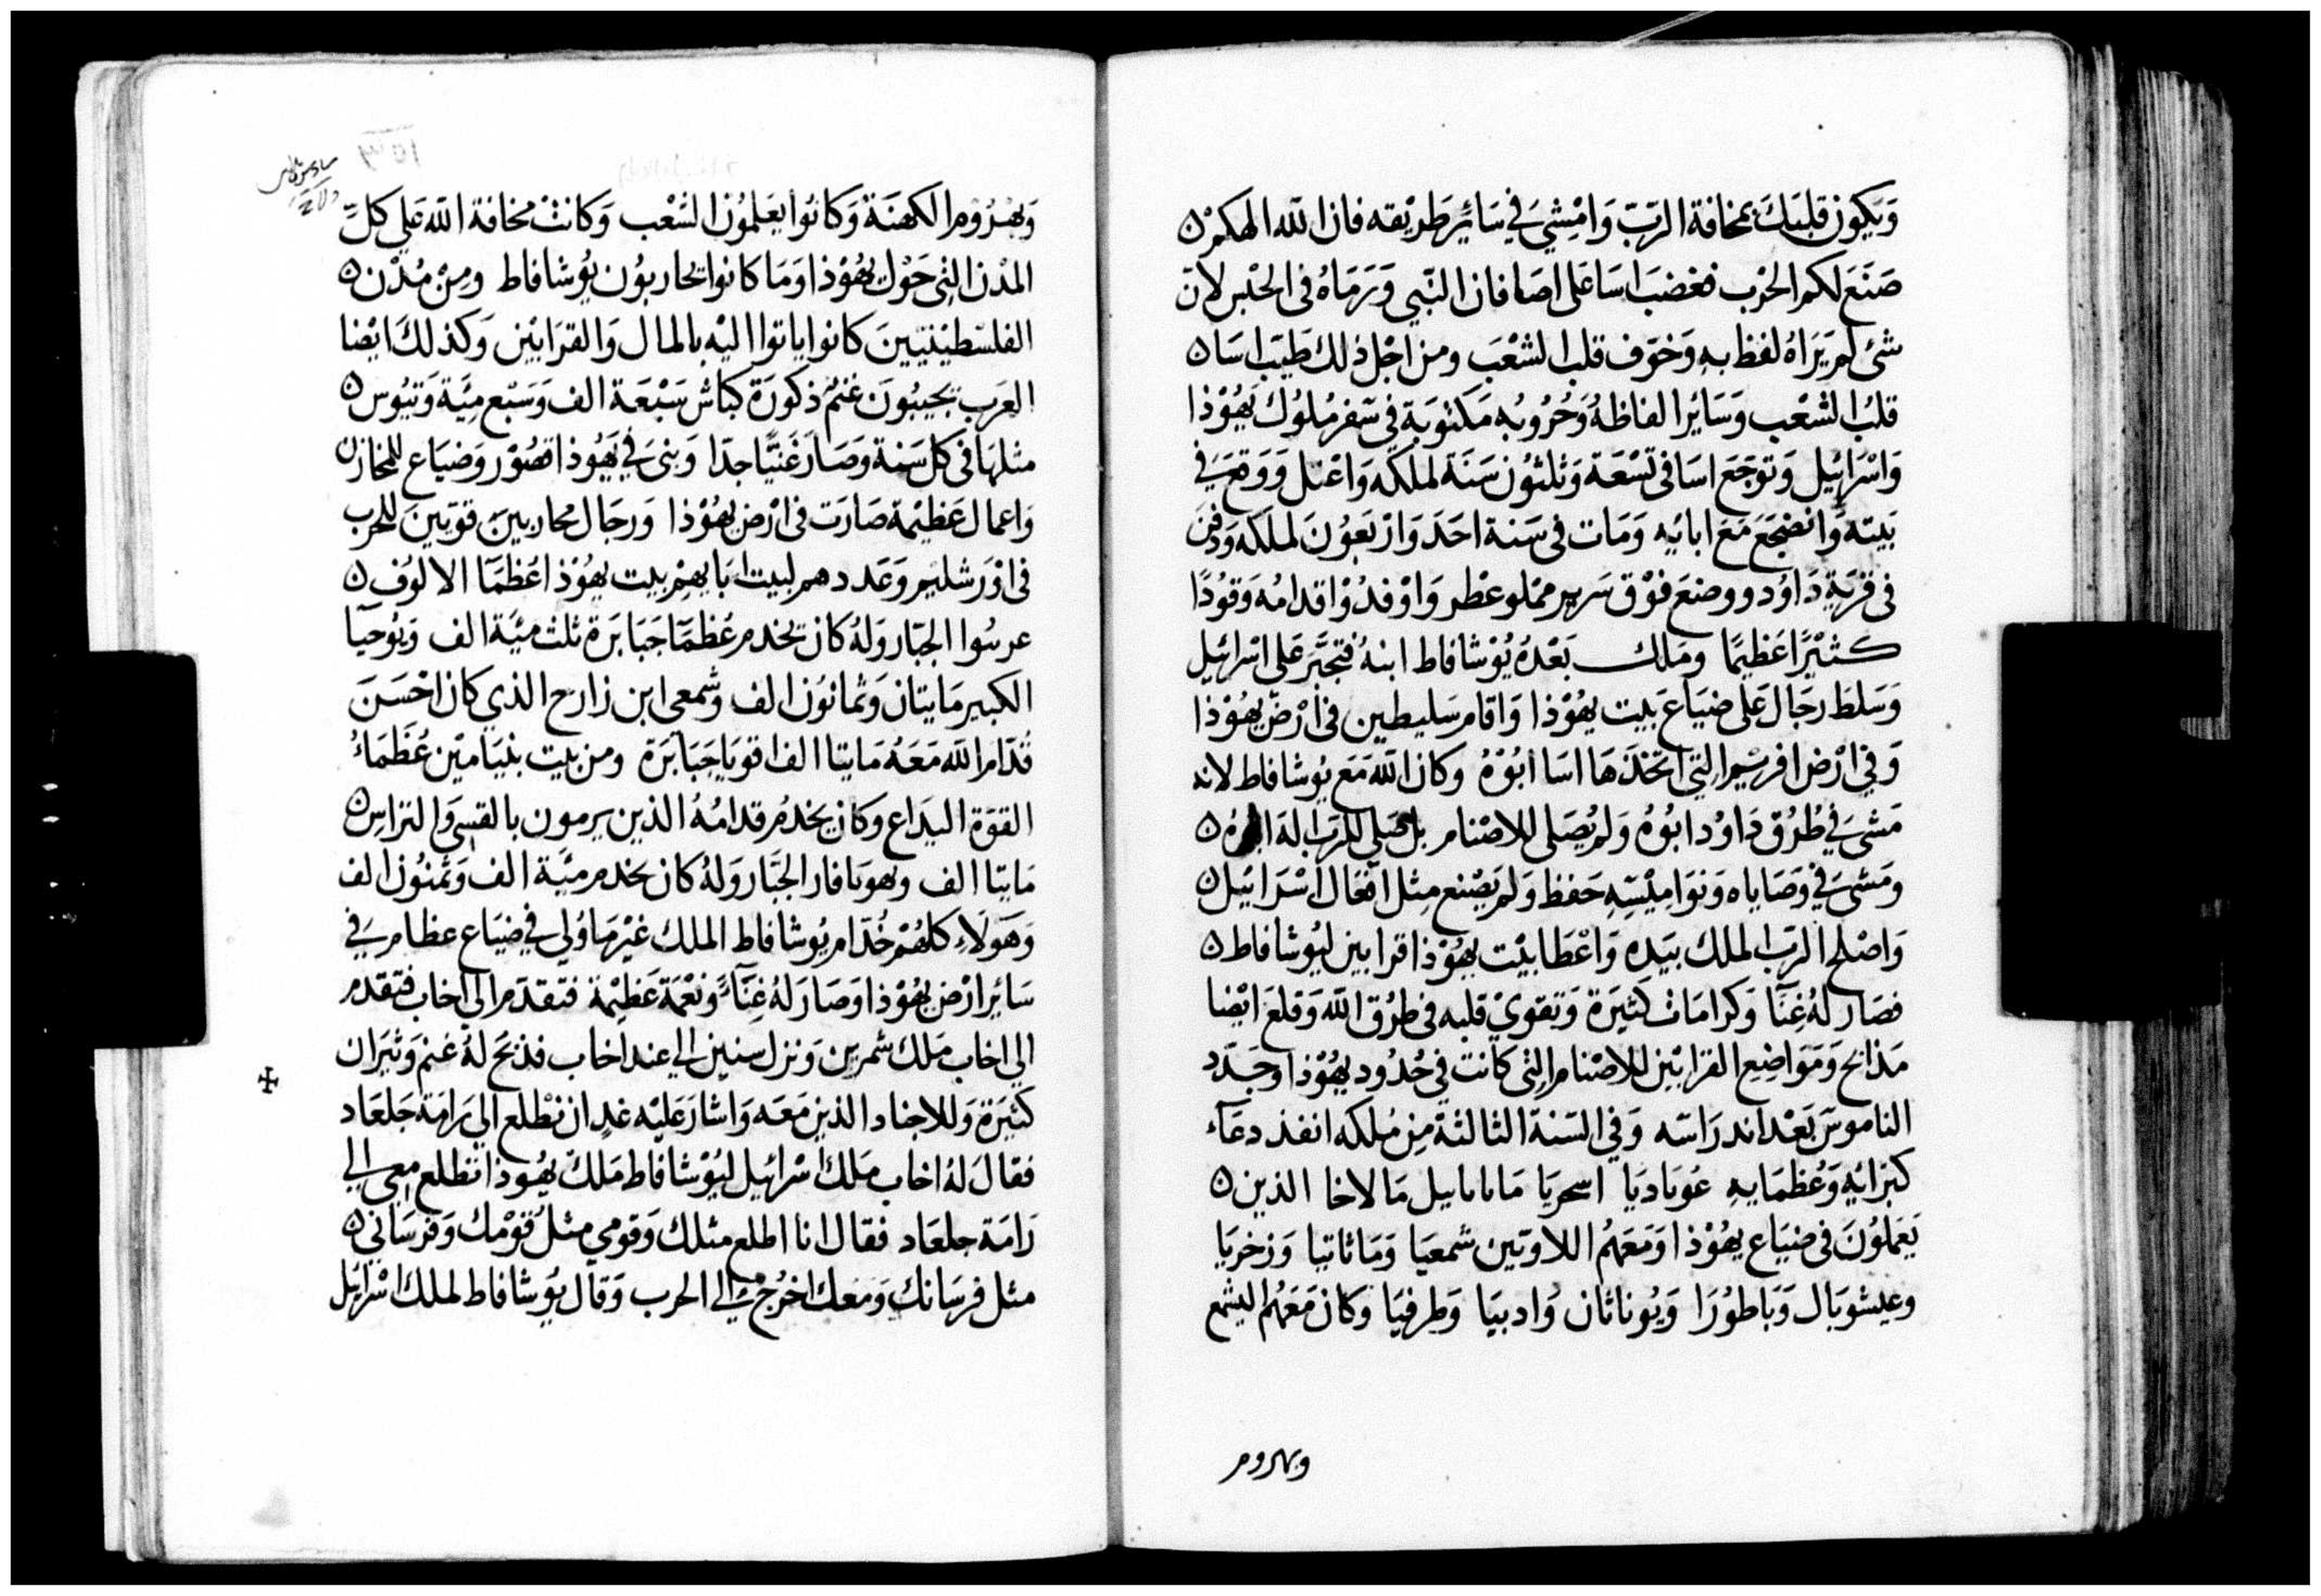 وَيَكون قلبَكَ بمخافة الرَبّ وَامْشِيَ في سَائِر طَريْقه فان الله الهكمْ ن
صَنَعَ لكم الحْرب فغضبَ اسَا عَلى اصَافان النَبي وَرَمَاهُ في الحْبس لان
شئ لم يَرَاهُ لفظ بهِ وَخوّف قلب الشعْبَ ومن اجْل ذلك طَيّب اسَا ن
قلبُ الشعْب وَسَايْر الفاظهُ وَحُرُوبُه مَكتوُبَة في سّفر مُلوُك يَهُوْذا
وَاسْرَائِيل وَتوَجَعَ اسَا في تسْعَة وَثلثوُن سَنَة لملكه وَاعْتل وَوَقعَ في
بَيته وَانضجَعَ مَعَ ابائِهِ وَمَات في سَنة احَدَ وَارْبَعوُنَ لملكه وَدُفِنَ
في قرْيَةِ دَاوُد ووضعَ فوْق سَرير ممْلو عطْر وَاوْقدُوْا قدامُه وَقوُدًا
كثيْرًا عَظيمًا ومَلك بَعْدهُ يُوْشافاط ابنهُ فتجبَّرَ عَلى اسْرائيل
وَسَلطَ رجَال عَلى ضيَاعَ بَيت يهُوْذا وَاقامَ سَليطين في ارْض يهُوْذا
وَفي ارْض افريْم التي اتخذَهَا اسَا ابُوْهُ وكان الله مَعَ يوُشافاط لانه
مَشىَ في طُرُق دَاوُد ابُوهُ وَلم يُصَلى للاصْنام بل صَلي للرَب اله ن
ومَشىَ في وَصَاياه وَنوَامِيْسِهِ حَفظ وَلم يَصْنع مِثل افعَال اسْرَائيل ن
وَاصْلح الرَب الملك بيَده وَاعْطَا بيْت يهُوْذا قرابين ليُوشافاط ن
فصَار لهُ غِنَا وَكرَامَات كثيَرة وَتقوي قلبه في طرُق الله وَقلعَ ايْضا
مَذابح وَمَوَاضِع القرابيْن للاصْنام التي كانت في حُدُود يهُوْذا وجَدّد
الناموسَ بَعْد اندرَاسه وَفي السَنة الثالثة مِن مُلكه انفذ دعَآء
كبَرَائِهِ وَعُظمَايِهِ عَوبَاديَا اسحريَا مَالاخا الذين ن
يَعَملوُنَ في ضيَاع يهُوْذا وَمَعَهُم اللاويّين شمعيَا وَمَاثانيا وَزخريَا
وعيشوبَال وَبَاطوُرَا وَيوُناثان وَادبيَا وَطرفيَا وكان مَعَهُم اليشمع
وبهروم
وَبهرُوُم الكهنَة وَكانوُا يعَلموُن الشعْب وَكانتْ مخافة الله عَلي كلّ
المدْن التي حَوْل يهُوْذا وَمَا كانوا يحاربوُن يُوشافاط ومِنْ مُدْن ن
الفلسَطيْنيّينَ كانوا ياتوا اليْه بالمال وَالقرَابيْن وَكذلكَ ايْضا
العرَب يجيبُونَ غنم ذكوَرة كباش سَبْعَة الف وَسَبْع مِيَّة وَتيُوس ن
مثلهَا في كل سَنة وَصَار غَنيًّا جدّا وَبنىَ في يَهُوذا قصُوْر وَضيَاع للمخازن
وَاعمال عَظيْمة صَارَت في ارْض يهُوْذا وَرجَال محاربينَ قوّيينَ للحرب
في اوْرَشليم وَعَددهم لبيت ابَايهمْ بيت يهُوْذا عُظمَآ الالوُف ن
عرسُوا الجبّار وَلهُ كان يخدم عُظمَآ جَبَابَرة ثلث ميَّة الف وَيوُحيَآ
الكبير مَايتان وَثمانوُن الف وشمعى ابن زارح الذي كان احْسَنَ
قُدّام الله مَعَهُ مَايتا الف اقويَا جَبَابَرَة ومن بيت بنيَاميْن عُظمَاءُ
القوَة اليدَاع وَكان يخدمُ قدامُهُ الذين يرمون بالقسى وَالتراس ن
مَايتا الف وبهويافار الجَبّار وَلهُ كان يخدم ميَّة الف وَثمنُون الف
وَهَولَاء كلهُمْ خُدّام يوُشافاط الملك غيْر مَا وُلي في ضيَاع عظام في
سَائر ارْض يهُوْذا وَصَار لهُ غِنَآءً وَنعْمَة عَظيْمة فتقدّم الي اخاب فتقدم
الي اخاب مَلك شمرين وَنزل سنين الي عند اخاب فذبَحَ لهُ غنم وَثيرَان
كثيَرة وَللاجناد الذين مَعَه وَاشار عَليْه غدٍ ان نطْلع الي رَامَة جَلعَاد
فقال لهُ اخاب مَلك اسْرائيل ليُوْشافاط مَلك يهُوذا تطلع معي الي
رَامَة جلعَاد فقال انا اطلع مثلك وَقومي مثلُ قوْمك وَفرسَاني ن
مثل فرسَانك وَمَعك اخرُج الى الحرب وَقال يوُشافاط لملك اسْرايئل